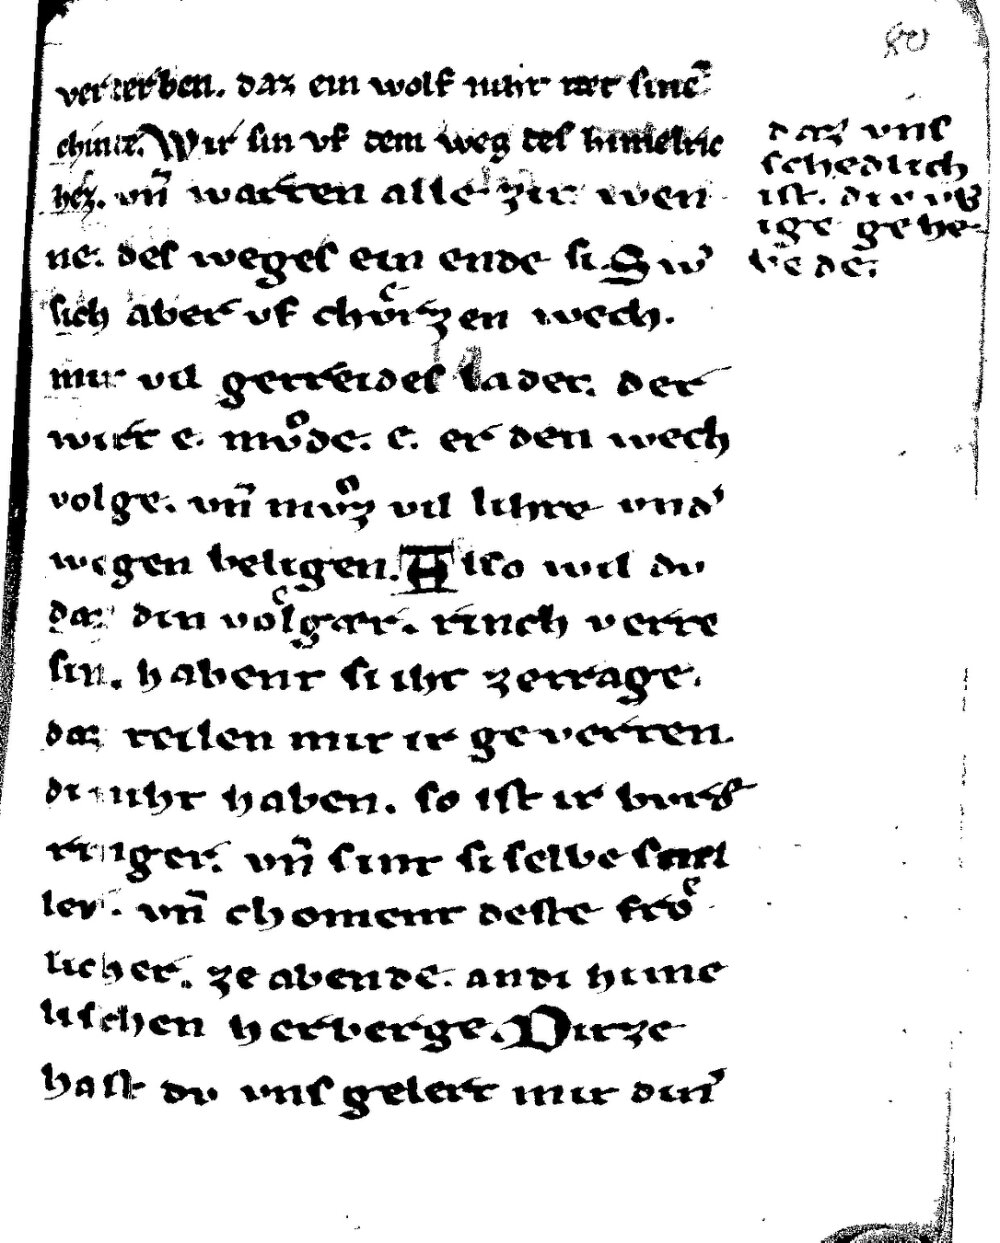 80
verterben. daz ein wolf niht tæt sinē
chinde. Wir sin vf dem weg des himelric
hez. vn̄ warten alle zit wen
ne. des weges ein ende si. Sw̓
sich aber vf chvͤrzen wech.
mit vil getreides lader. der
wirt e. mvͦde. e. er den wech
volge. vn̄ mvͦz vil lihte vnd̓
wegen beligen. Also wil dv
daz din volͤgær. rinch verte
sin. habent si iht zetrage.
daz teilen mit ir geverten.
di niht haben. so ist ir bvrde
ringer. vn̄ sint si selbe snel
ler. vn̄ choment deste frvͤ
licher. ze abende. an di hime
lischen herberge. Dirze
hast dv vns gelert mit din̓
daz vns
schedlich
ist. div vb̓
ige gehe-
be de.